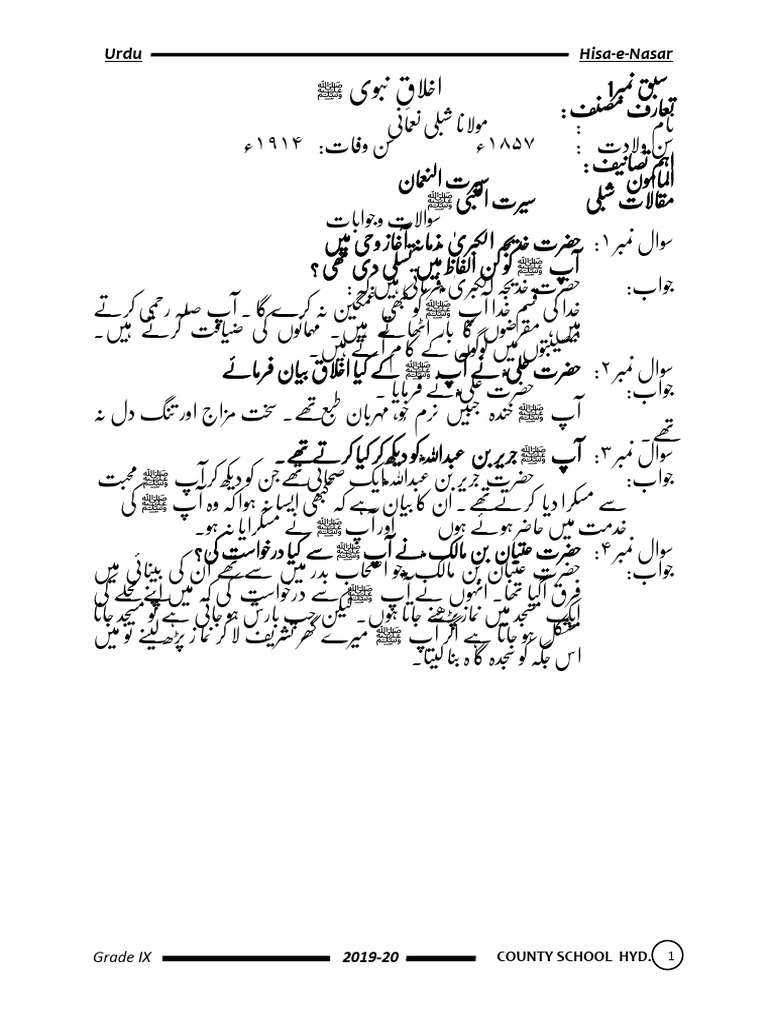 Urdu Hisa-e-Nasar
سبق نمبر1 اخلاقِ نبوی ﷺ
تعارف مصنف :
نام : مولانا شبلی نعمانی
سن ولادت : ۱۸۵۷ء سن وفات: ۱۹۱۴ء
اہم تصانیف :
المامون سیرت النعمان
مقالات شبلی سیرت النبی ﷺ
سوالات و جوابات
سوال نمبر ۱: حضرت خدیجہ الکبریٰ نے زمانہ آغاز وحی میں
آپ ﷺ کو کن الفاظ میں تسلی دی تھی ؟
جواب: حضرت خدیجہ الکبریٰ فرماتی ہیں کہ :
خدا کی قسم خدا آپ ﷺ کو کبھی غمگین نہ کرے گا۔ آپ صلہ رحمی کرتے
ہیں، مقراضوں کا بار اٹھاتے ہیں۔ مہمانوں کی ضیافت کرتے ہیں۔
مصیبتوں میں لوگوں کے کام آتے ہیں۔
سوال نمبر ۲: حضرت علی نے آپ ﷺ کے کیا اخلاق بیان فرمائے
جواب: حضرت علی نے فرمایا ۔
آپ ﷺ خندہ جبیں نرم خو، مہربان طبع تھے۔ سخت مزاج اور تنگ دل نہ
تھے۔
سوال نمبر ۳: آپ ﷺ جریر بن عبداللہ کو دیکھ کر کیا کرتے تھے۔
جواب: حضرت جریر بن عبداللہ ایک صحابی تھے جن کو دیکھ کر آپ ﷺ محبت
سے مسکرا دیا کرتے تھے۔ ان کا بیان ہے کہ کبھی ایسا نہ ہوا کہ وہ آپ ﷺ کی
خدمت میں حاضر ہوئے ہوں اور آپ ﷺ نے مسکرایا نہ ہو۔
سوال نمبر ۴: حضرت عتبان بن مالک نے آپ ﷺ سے کیا درخواست کی؟
جواب: حضرت عتبان بن مالک جو اصحاب بدر میں سے تھے ان کی بینائی میں
فرق آگیا تھا۔ انہوں نے آپ ﷺ سے درخواست کی کہ میں اپنے محلے کی
ایک مسجد میں نماز پڑھنے جاتا ہوں۔ لیکن جب بارش ہو جاتی ہے تو مسجد جانا
مشکل ہو جاتا ہے اگر آپ ﷺ میرے گھر تشریف لا کر نماز پڑھ لیتے تو میں
اس جگہ کو سجدہ گاہ بنا لیتا۔
Grade IX 2019-20 COUNTY SCHOOL HYD. 1